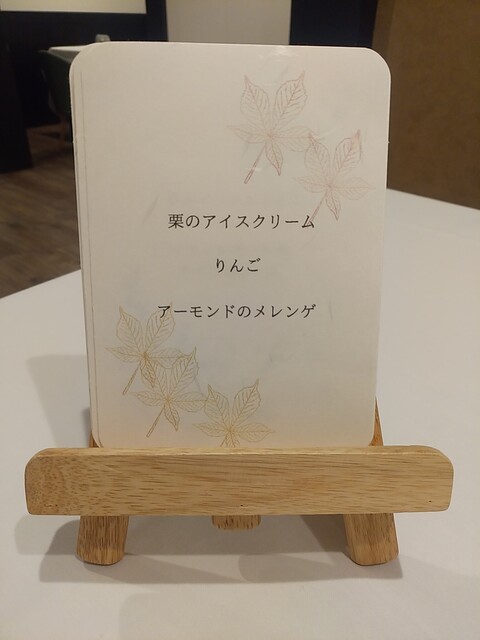 栗のアイスクリーム
りんご
アーモンドのメレンゲ